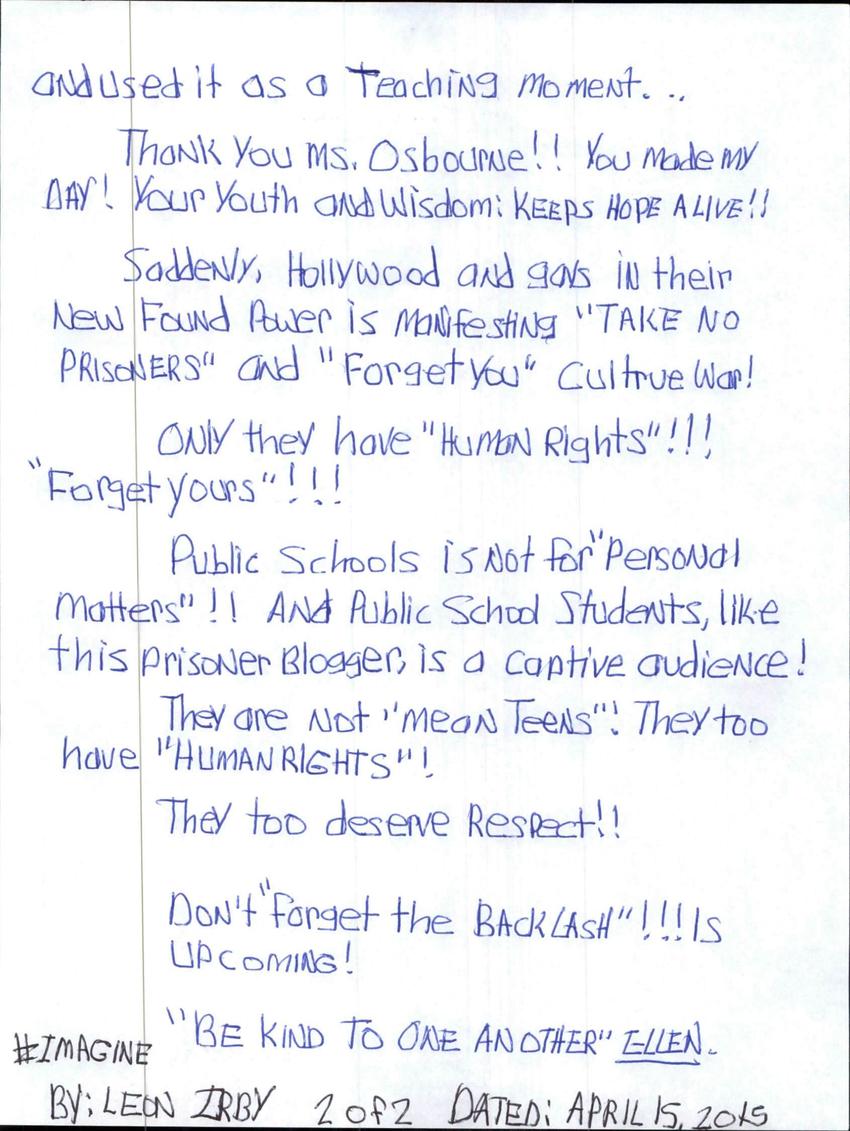 and used it as a Teaching moment...
Thank you ms. Osbourne!! You made my
DAY! Your Youth and Wisdom: KEEPS HOPE ALIVE!!
Suddenly, Hollywood and gays in their
New Found Power is manifesting "TAKE NO
PRISONERS" and "Forget You" Cultrue War!
ONly they have "Human Rights"!!!
"Forget yours"!!!
Public Schools is Not for "Personal
matters"!! And Public School Students, like
this prisoner Blogger, is a captive audience!
They are not "mean Teens"! They too
have "HUMAN RIGHTS"!
They too deserve Respect!!
Don't "forget the BACKLASH"!!! Is
UPCOMING!
"BE KIND TO ONE ANOTHER" ELLEN.
#IMAGINE
BY: LEON IRBY 2 of 2 DATED: APRIL 15, 2015